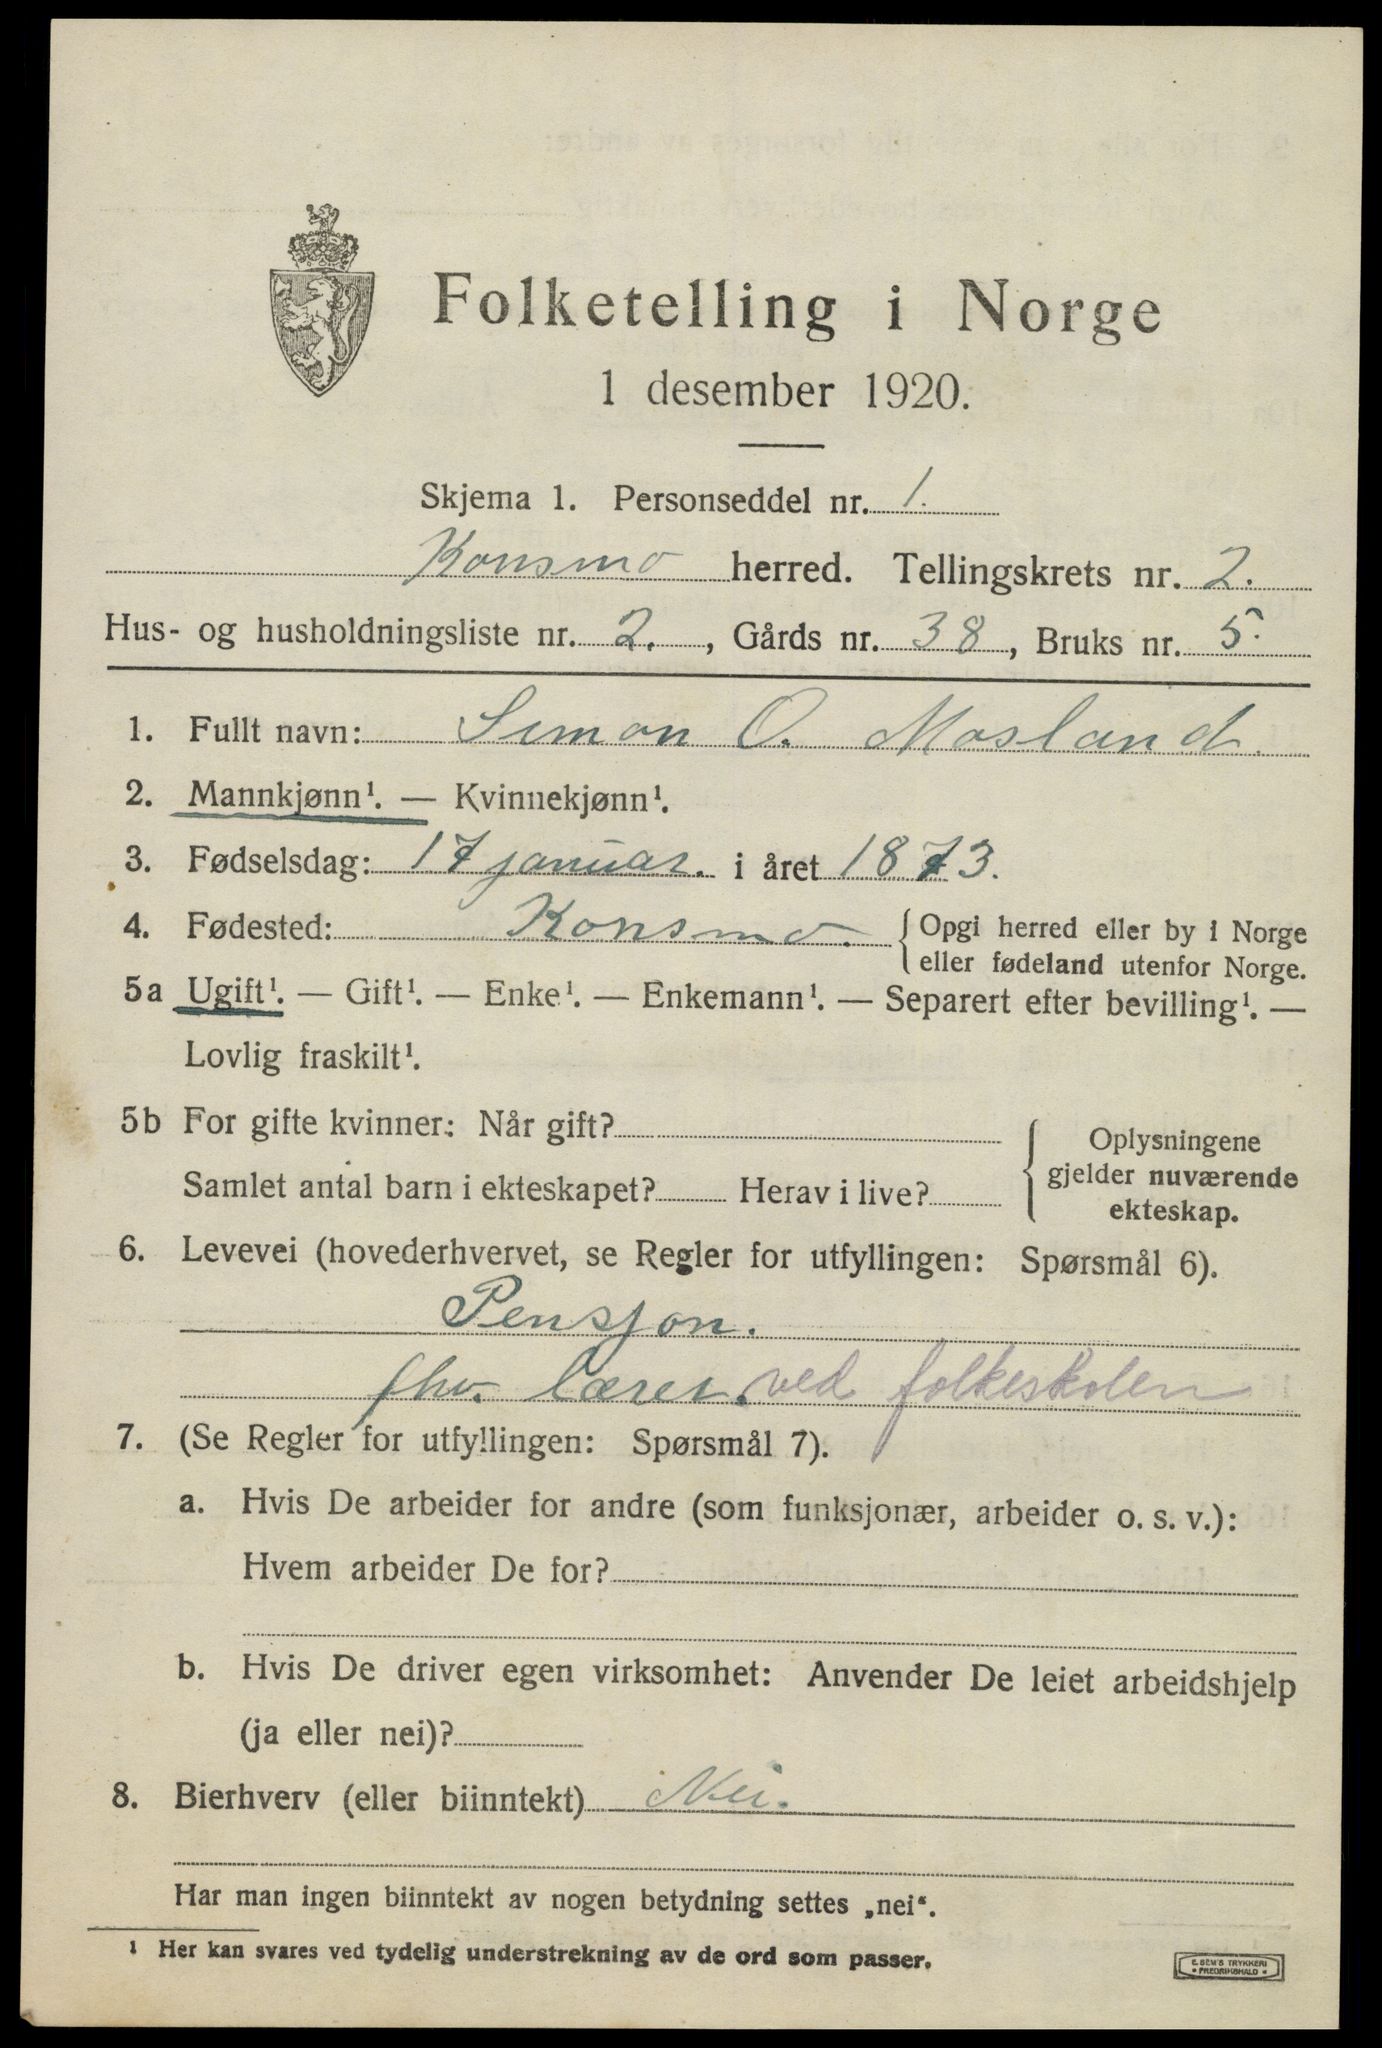 Folketelling i Norge
1 desember 1920.
Skjema 1. Personseddel nr. 1.
Konsmo herred. Tellingskrets nr. 2.
Hus- og husholdningsliste nr. 2., Gårds nr. 38, Bruks nr. 5.
1. Fullt navn: Simon O. Mosland.
2. Mannkjønn¹. — Kvinnekjønn¹.
3. Fødselsdag: 17 januar. i året 1873.
4. Fødested: Konsmo. { Opgi herred eller by i Norge
eller fødeland utenfor Norge.
5a Ugift¹. — Gift¹. — Enke¹. — Enkemann¹. — Separert efter bevilling¹. —
Lovlig fraskilt¹.
5b For gifte kvinner: Når gift?
Samlet antal barn i ekteskapet? Herav i live?
Oplysningene
gjelder nuværende
ekteskap.
6. Levevei (hovederhvervet, se Regler for utfyllingen: Spørsmål 6).
Pensjon.
fhv. lærer. ved folkeskolen
7. (Se Regler for utfyllingen: Spørsmål 7).
a. Hvis De arbeider for andre (som funksjonær, arbeider o. s. v.):
Hvem arbeider De for?
b. Hvis De driver egen virksomhet: Anvender De leiet arbeidshjelp
(ja eller nei)?
8. Bierhverv (eller biinntekt) Nei.
Har man ingen biinntekt av nogen betydning settes „nei“.
¹ Her kan svares ved tydelig understrekning av de ord som passer.
E. SEM'S TRYKKERI
• FREDRIKSHALD •